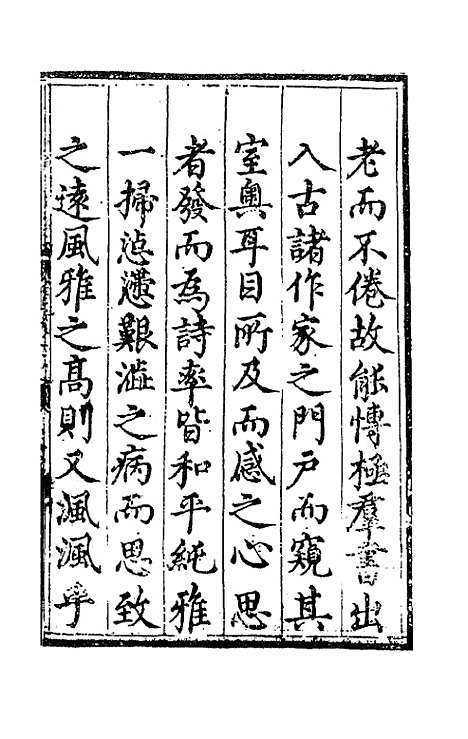 老而不倦故能博極羣書出
入古諸作家之門戶而窺其
室奧耳目所及而感之心思
者發而爲詩率皆和平純雅
一掃惉懘艱澁之病而思致
之遠風雅之高則又渢渢乎